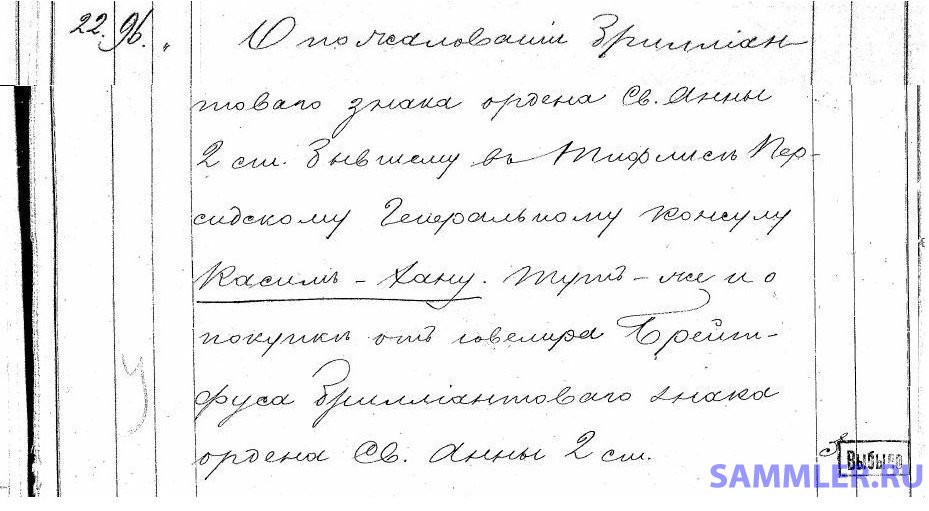 22. 96. „ О пожалованіи Брилліан-
товаго знака ордена Св. Анны
2 ст. бывшему въ Тифлисѣ Пер-
сидскому Генеральному Консулу
Касимъ-Хану. Тутъ-же и о
покупкѣ отъ ювелира Брейт-
фуса брилліантоваго знака
ордена Св. Анны 2 ст.
Выбыло
SAMMLER.RU